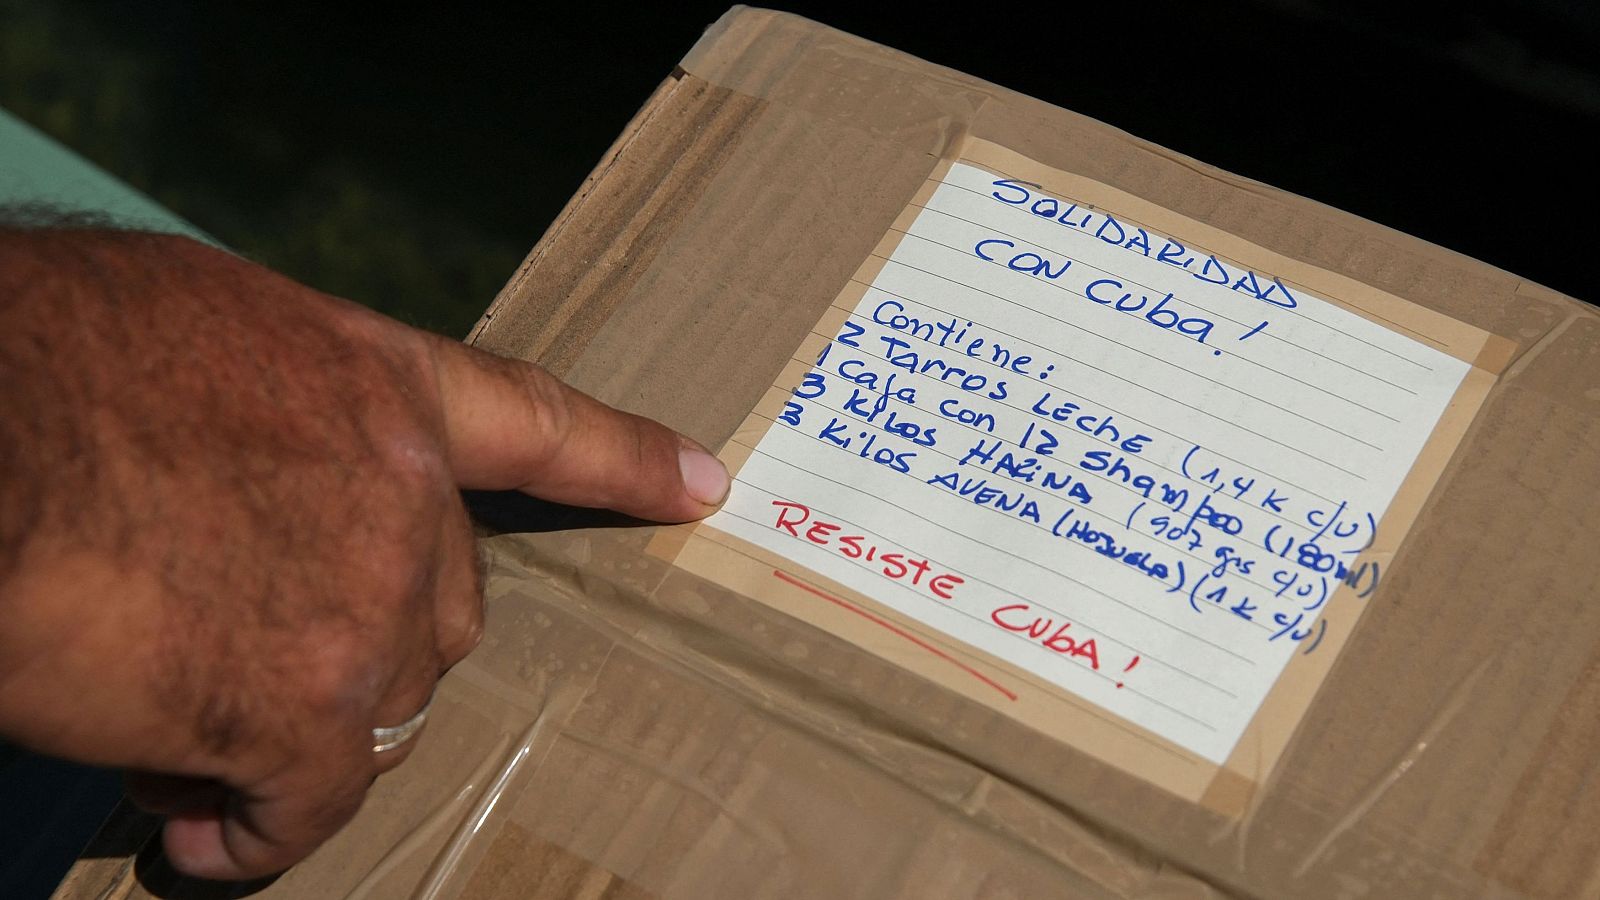 SOLIDARIDAD
CON CUBA!
Contiene:
2 TARROS LECHE (1,4 K c/u)
1 Caja con 12 Shampoo (180 ml)
3 Kilos HARINA (907 grs c/u)
3 Kilos AVENA (HOJUELA) (1 K c/u)
RESISTE CUBA!